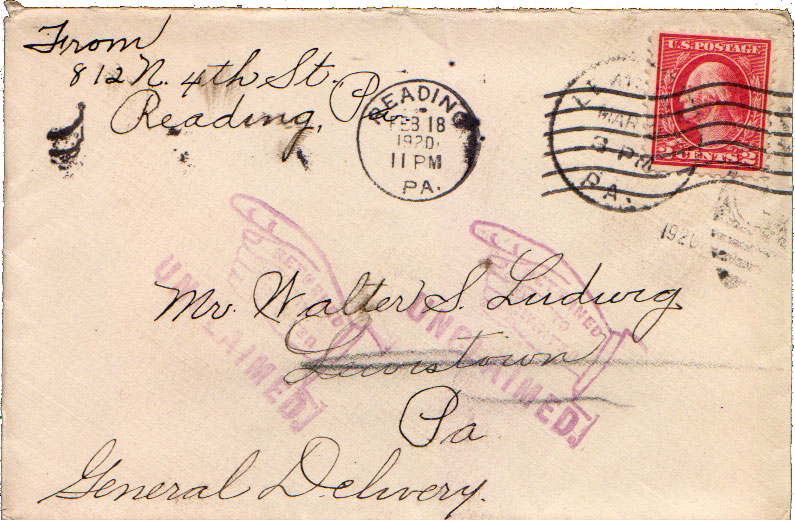 From
812 N. 4th St.
Reading, Pa.
READING
FEB 18
1920
11 PM
PA.
U.S. POSTAGE
2 CENTS 2
MAR
3 PM
PA.
1920
RETURNED
TO
UNCLAIMED.
RETURNED
TO
UNCLAIMED.
Mr. Walter S. Ludwig
Lewistown
Pa
General Delivery.